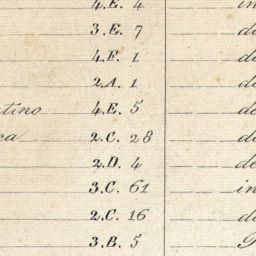 4.E. 4 in
3.E. 7 do
4.E. 1 do
2.A. 1 do
tino 4.E. 5 do
ca 2.C. 28 do
2.D. 4 de
3.C. 61 in
2.C. 16 do
3.B. 5